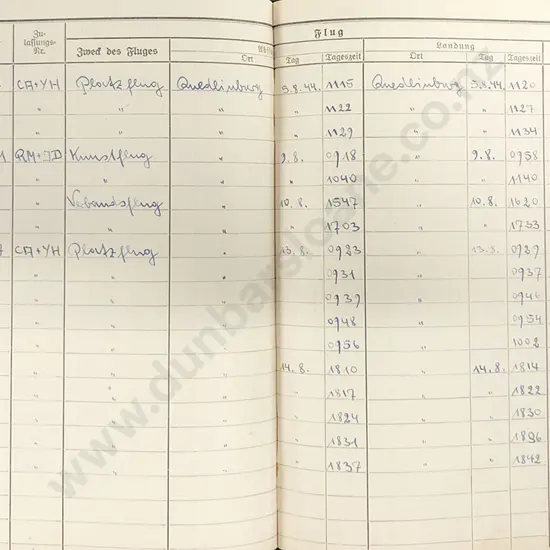 Flug
Zu-
lassungs-
Nr. Zweck des Fluges Abflug Landung
Ort Tag Tageszeit Ort Tag Tageszeit
CA+YH Platzflug Quedlinburg 5.8.44. 1115 Quedlinburg 5.8.44. 1120
" " " " 1122 " " 1127
" " " " 1129 " " 1134
RM+JD Kunstflug " 9.8. 0918 " 9.8. 0958
" " " " 1040 " " 1140
Verbandsflug " 10.8. 1547 " 10.8. 1620
" " " 1703 " " 1733
CA+YH Platzflug " 13.8. 0923 " 13.8. 0929
" " " 0931 " 0937
" " " 0939 " 0946
" " " 0948 " 0954
" " " 0956 " 1002
" " " 14.8. 1810 " 14.8. 1814
" " " " 1817 " " 1822
" " " " 1824 " " 1830
" " " " 1831 " " 1836
" " " " 1837 " " 1842
www.dunbarsloane.co.nz